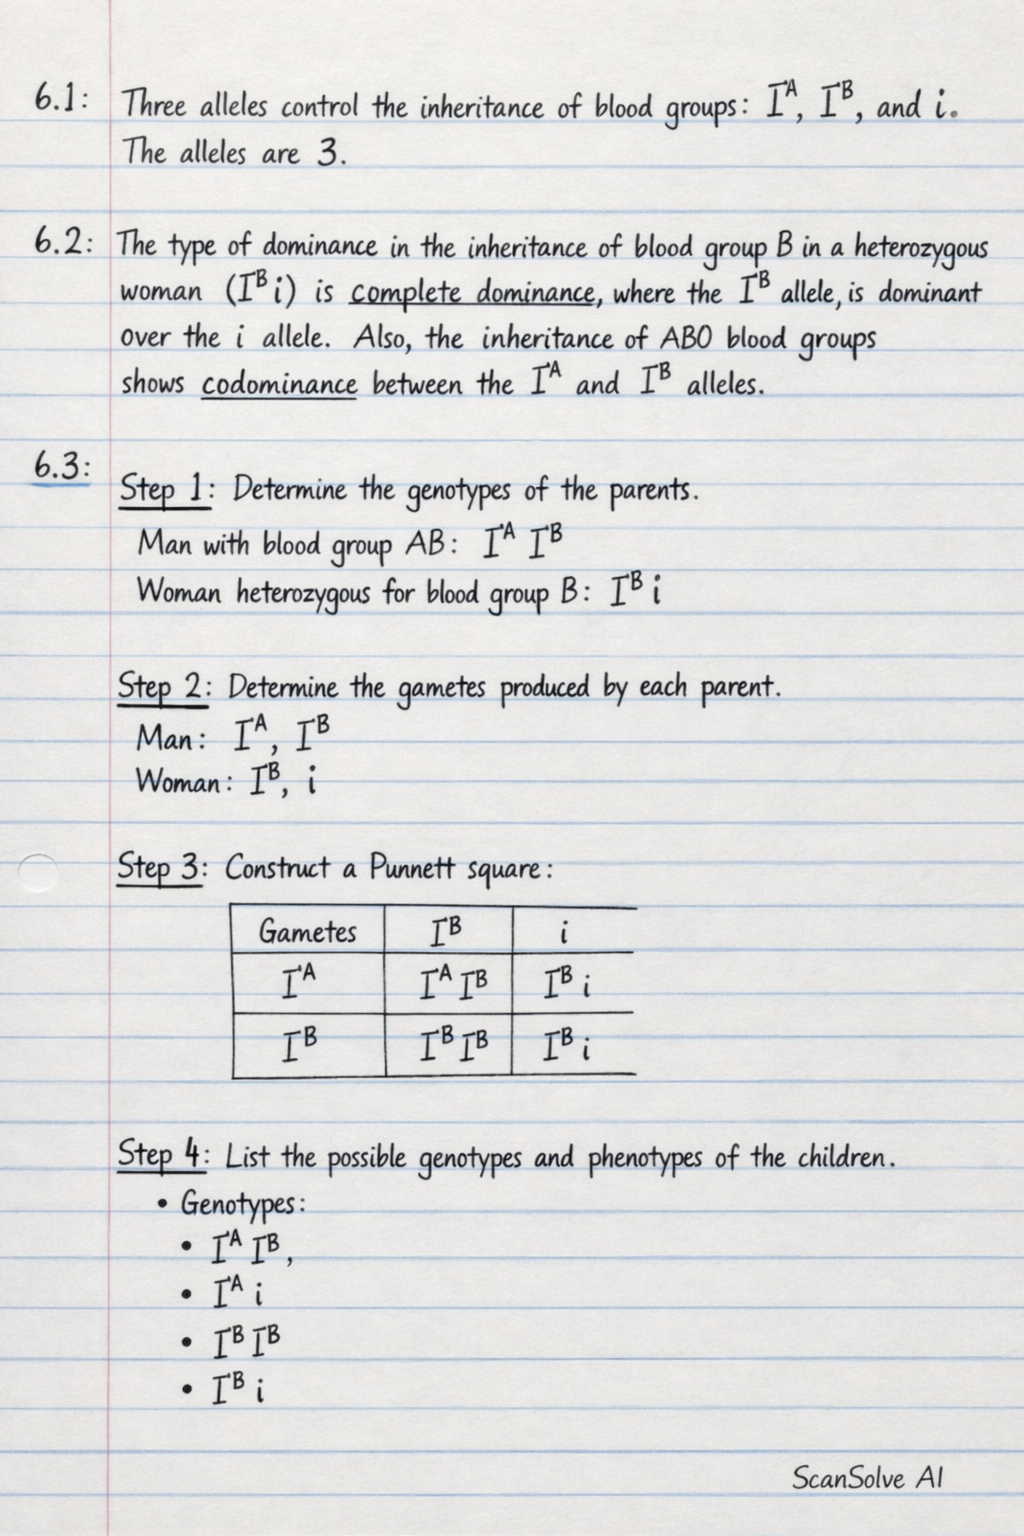 6.1: Three alleles control the inheritance of blood groups: Iᴬ, Iᴮ, and i.
The alleles are 3.
6.2: The type of dominance in the inheritance of blood group B in a heterozygous
woman (Iᴮ i) is complete dominance, where the Iᴮ allele, is dominant
over the i allele. Also, the inheritance of ABO blood groups
shows codominance between the Iᴬ and Iᴮ alleles.
6.3:
Step 1: Determine the genotypes of the parents.
Man with blood group AB: Iᴬ Iᴮ
Woman heterozygous for blood group B: Iᴮ i
Step 2: Determine the gametes produced by each parent.
Man: Iᴬ, Iᴮ
Woman: Iᴮ, i
Step 3: Construct a Punnett square:
Gametes Iᴮ i
Iᴬ Iᴬ Iᴮ Iᴮ i
Iᴮ Iᴮ Iᴮ Iᴮ i
Step 4: List the possible genotypes and phenotypes of the children.
• Genotypes:
• Iᴬ Iᴮ,
• Iᴬ i
• Iᴮ Iᴮ
• Iᴮ i
ScanSolve AI